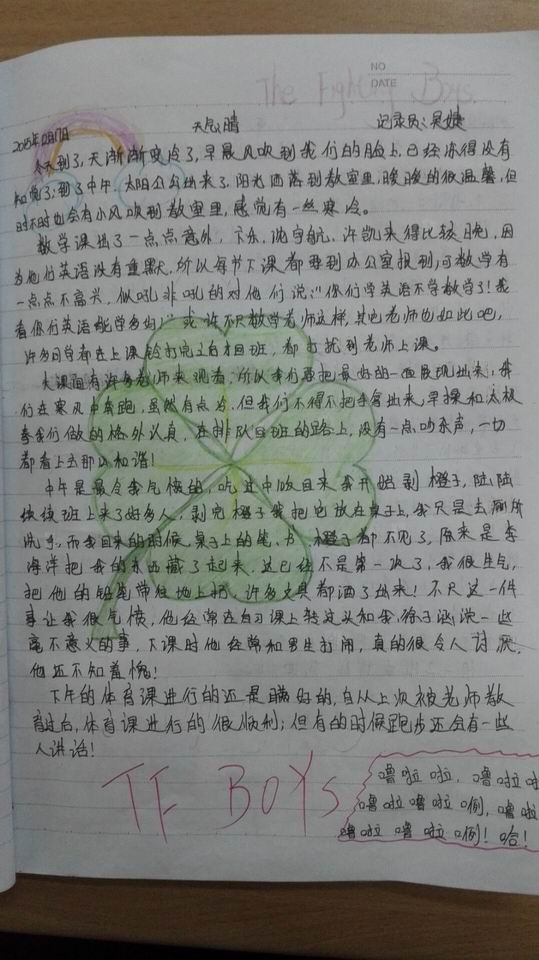 NO
DATE
The Fighting Boys
2015年12月17日 天气:晴 记录员:吴婕
冬天到了,天渐渐变冷了,早晨风吹到我们的脸上,已经冻得没有
知觉了;到了中午,太阳公公出来了,阳光洒落到教室里,暖暖的很温馨,但
时不时也会有小风吹到教室里,感觉有一丝寒冷。
数学课出了一点点意外,卞乐、沈宇航、许凯来得比较晚,因
为他们英语没有重默,所以每节下课都要到办公室报到,可数学有
一点点不高兴,似吼非吼的对他们说:"你们学英语不学数学了!我
看你们英语能学多好!"或许不只数学老师这样,其它老师也如此吧,
许多同学都在上课铃打完之后才回班,都打扰到老师上课。
大课间有许多老师来观看,所以我们要把最好的一面展现出来,我
们在寒风中奔跑,虽然有点冷,但我们不得不把手拿出来,早操和太极
拳我们做的格外认真,在排队回班的路上,没有一点吵杂声,一切
都看上去那么和谐!
中午是最令我气愤的,吃过中饭回来我开始剥橙子,陆陆
续续班上来了好多人,剥完橙子我把它放在桌子上,我只是去厕所
洗手,而我回来的时候,桌子上的笔、书、橙子都不见了,原来是李
海洋把我的东西藏了起来,这已经不是第一次了,我很生气,
把他的铅笔带往地上把,许多文具都洒了出来!不只这一件
事让我很气愤,他经常在自习课上转过头和我、徐子涵说一些
毫不意义的事,下课时他经常和男生打闹,真的很令人讨厌,
他还不知羞愧!
下午的体育课进行的还是瞒好的,自从上次被老师教
育过后,体育课进行的很顺利;但有的时候跑步还会有一些
人讲话!
TF BOYS
噜啦啦,噜啦
噜啦噜啦咧,噜啦
噜啦噜啦咧!哈!